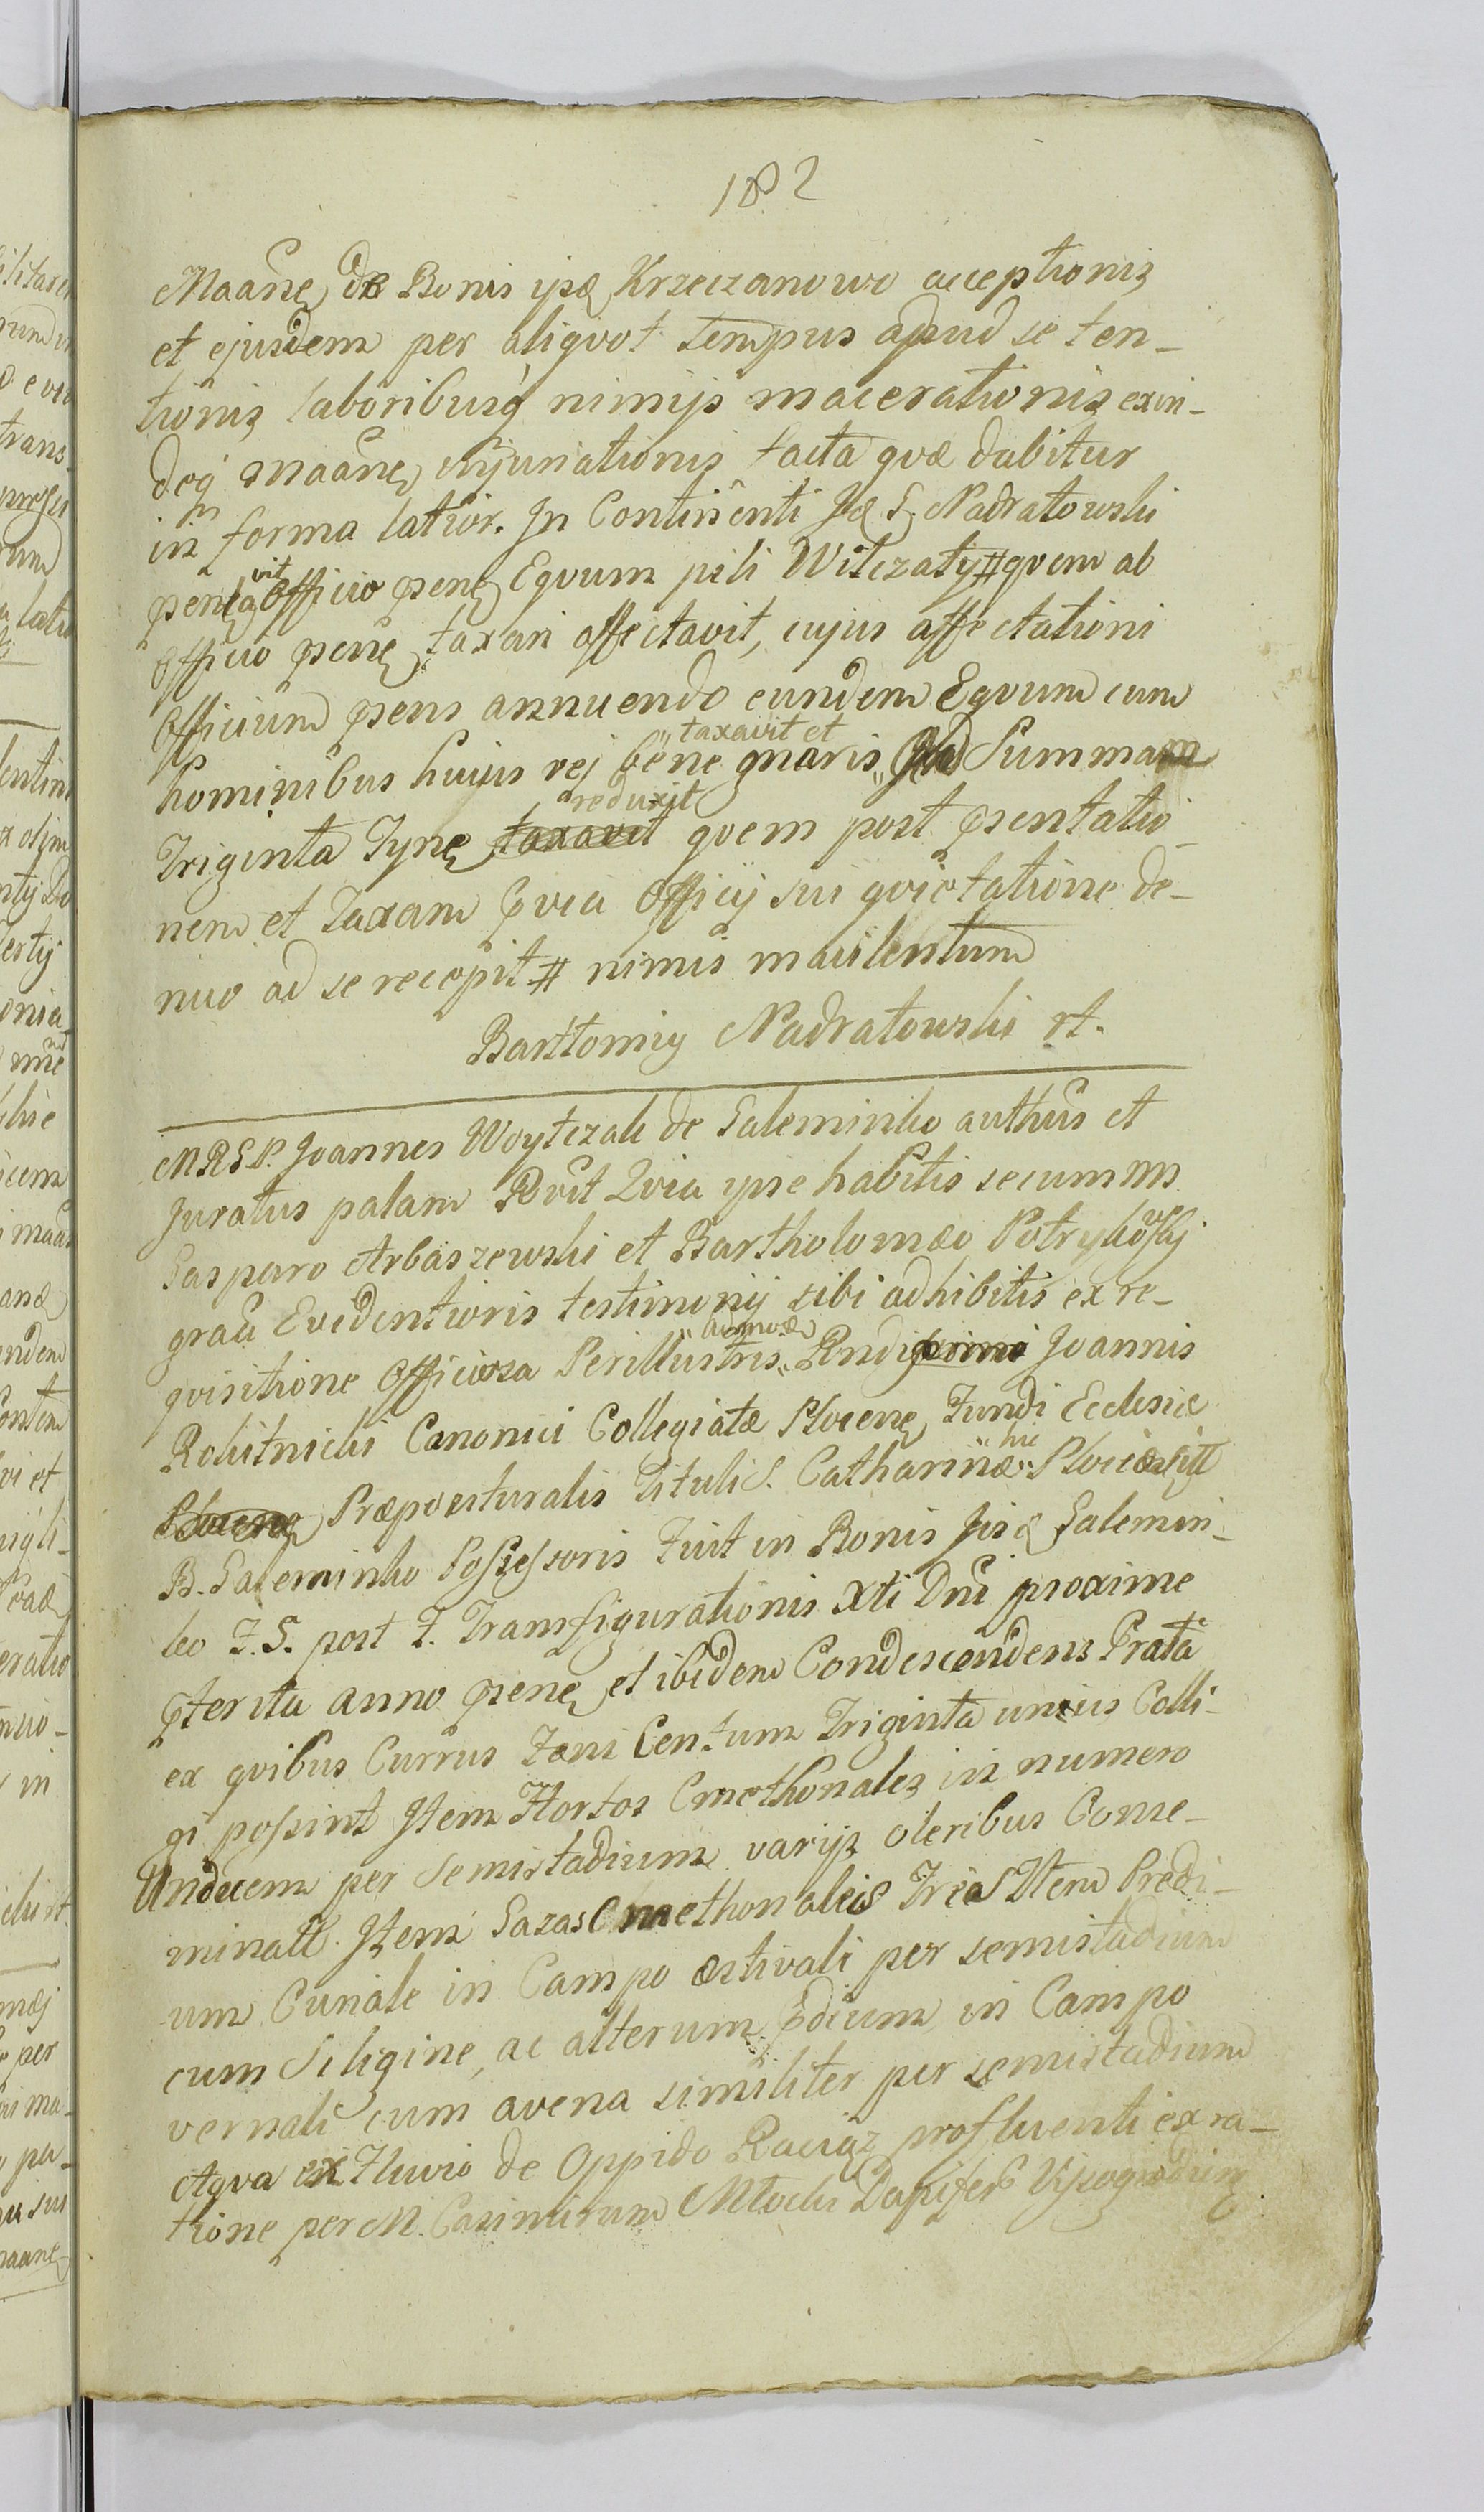 182
Maane de Bonis ipse Krzeczanowo acceptionis
et ejusdem per aliqvot tempus apud se ten-
tionis laboribusq nimijs macerationis exin-
deq maane injuriationis facta qvæ dabitur
in forma latior. In Continenti Idem G. Nadratowski
psenta vit Officio psene Eqvum pili Wilczaty # qvem ab
Officio psene taxari affectavit, cujus affectationi
Officium psens annuendo eundem Eqvum cum
hominibus hujus rej bene gnaris " taxavit et " ad Summam
Triginta Tyne taxavit reduxit qvem post psentatio
nem et Taxam pvia Officij sui qvietatione de-
nuo ad se recepit # nimis macilentum
Barttomiy Nadratowski rt.
MRSP. Joannes Woytczak de Galeminko auth̃us et
Juratus palam Rvit Qvia ipse habitis secum NN
Gasparo Arbaszewski et Bartholomæo Potrykowskj
grau Evidentioris testimonij sibi adhibitis ex re-
qvisitione Officiosa Perillustris " admodu " Rndi Joannis
Rokitnicki Canonici Collegiatæ Plocene, Fundi Ecclesiæ
Plocene Præposituralis Tituli S. Catharinæ " hic " Plociæ
B. Galeminko Possessoris Fuit in Bonis Galemin-
ko F. S. post F. Transfigurationis Xti Dni proxime
pterita anno psene et ibidem Condescendens Prata
ex qvibus Currus Fæni Centum Triginta unius Colli-
gi possint Item Hortos Cmethonales in numero
Undecem per Semistadium varijs oleribus Conse-
minatt. Item Gazas Cmethonales Tres Item Predi-
um Curiale in Campo æstivali per semistadium
cum Siligine, ac alterum pdium in Campo
vernali cum avena similiter per semistadium
Aqva ex Fluvio de Oppido Raciąz profluenti ex ra-
tione per M. Casimirum Mtocki Dapifer